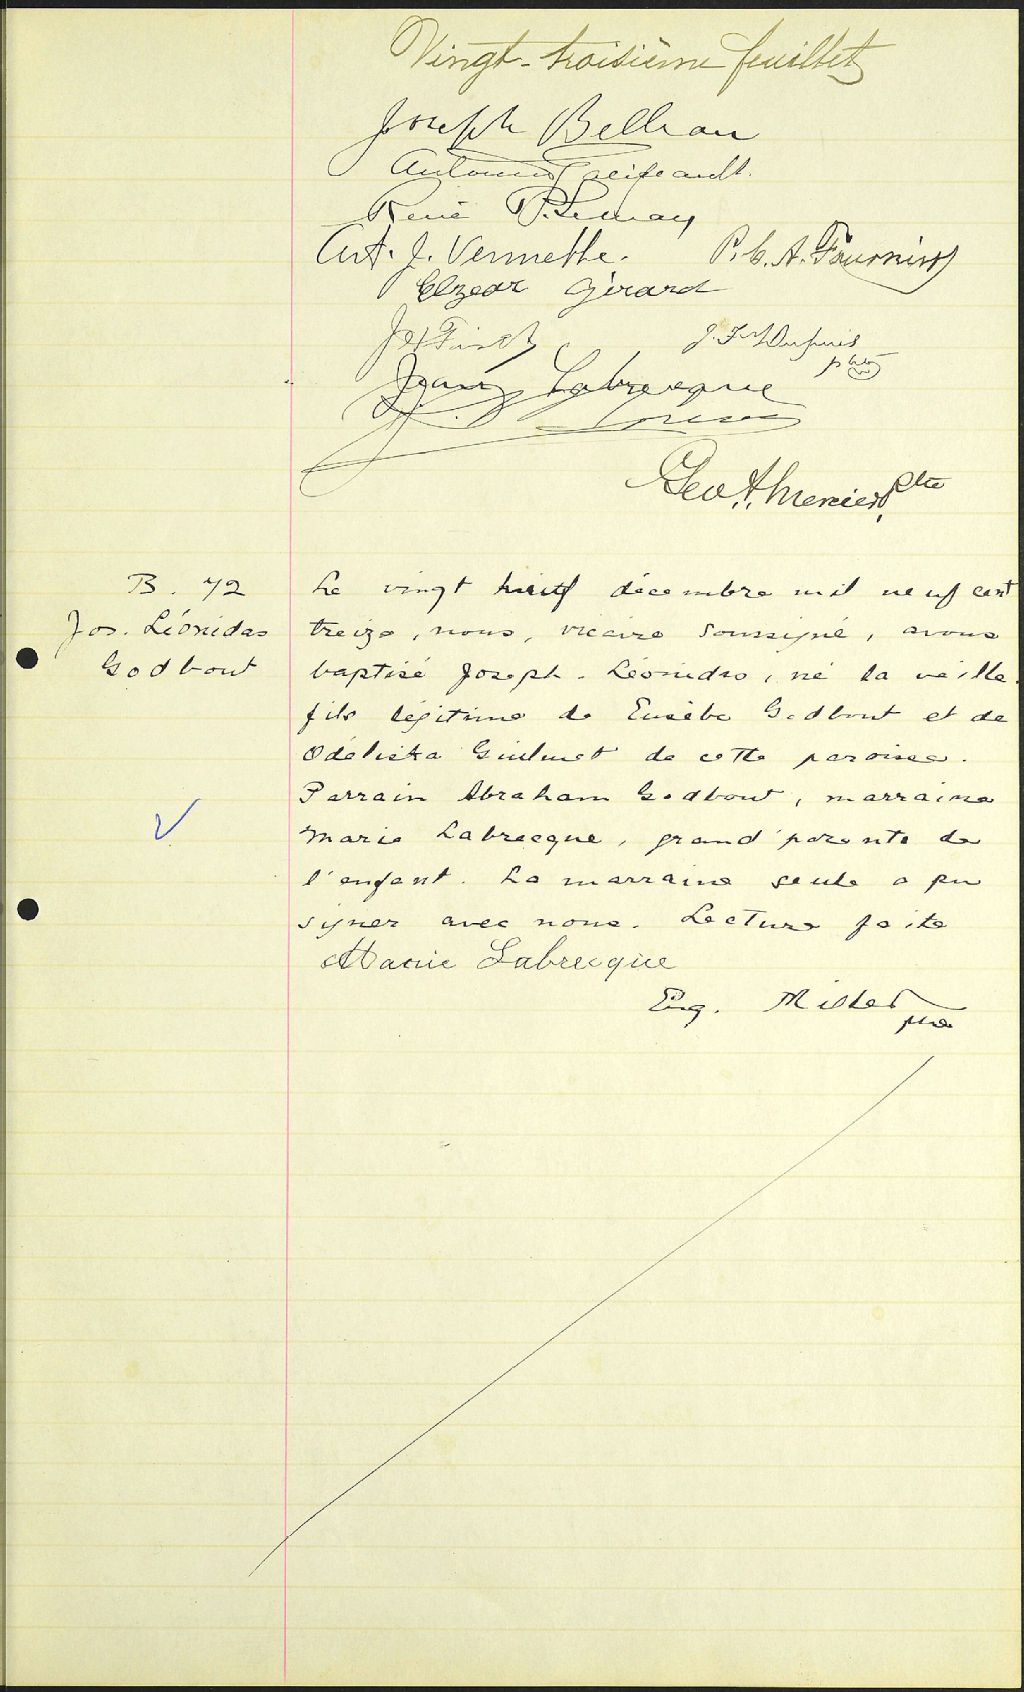 Vingt-troisième feuillet
Joseph Belleau
René P. Lemay
Art. J. Vermette. P. C. A. Fournier
Elzear Gerard
J. F. Dupuis
ptre
Jean Labrecque
Geo. A. Mercier, Ptre
B. 72
Jos. Léonidas
Godbout
Le vingt huit décembre mil neuf cent
treize, nous, vicaire soussigné, avons
baptisé Joseph. Léonidas, né la veille
fils légitime de Eusèbe Godbout et de
Odeliska Guilmet de cette paroisse.
Parrain Abraham Godbout, marraine
Marie Labrecque, grand'parents de
l'enfant. La marraine seule a pu
signer avec nous. Lecture faite
Marie Labrecque
Eug. Millet
ptre